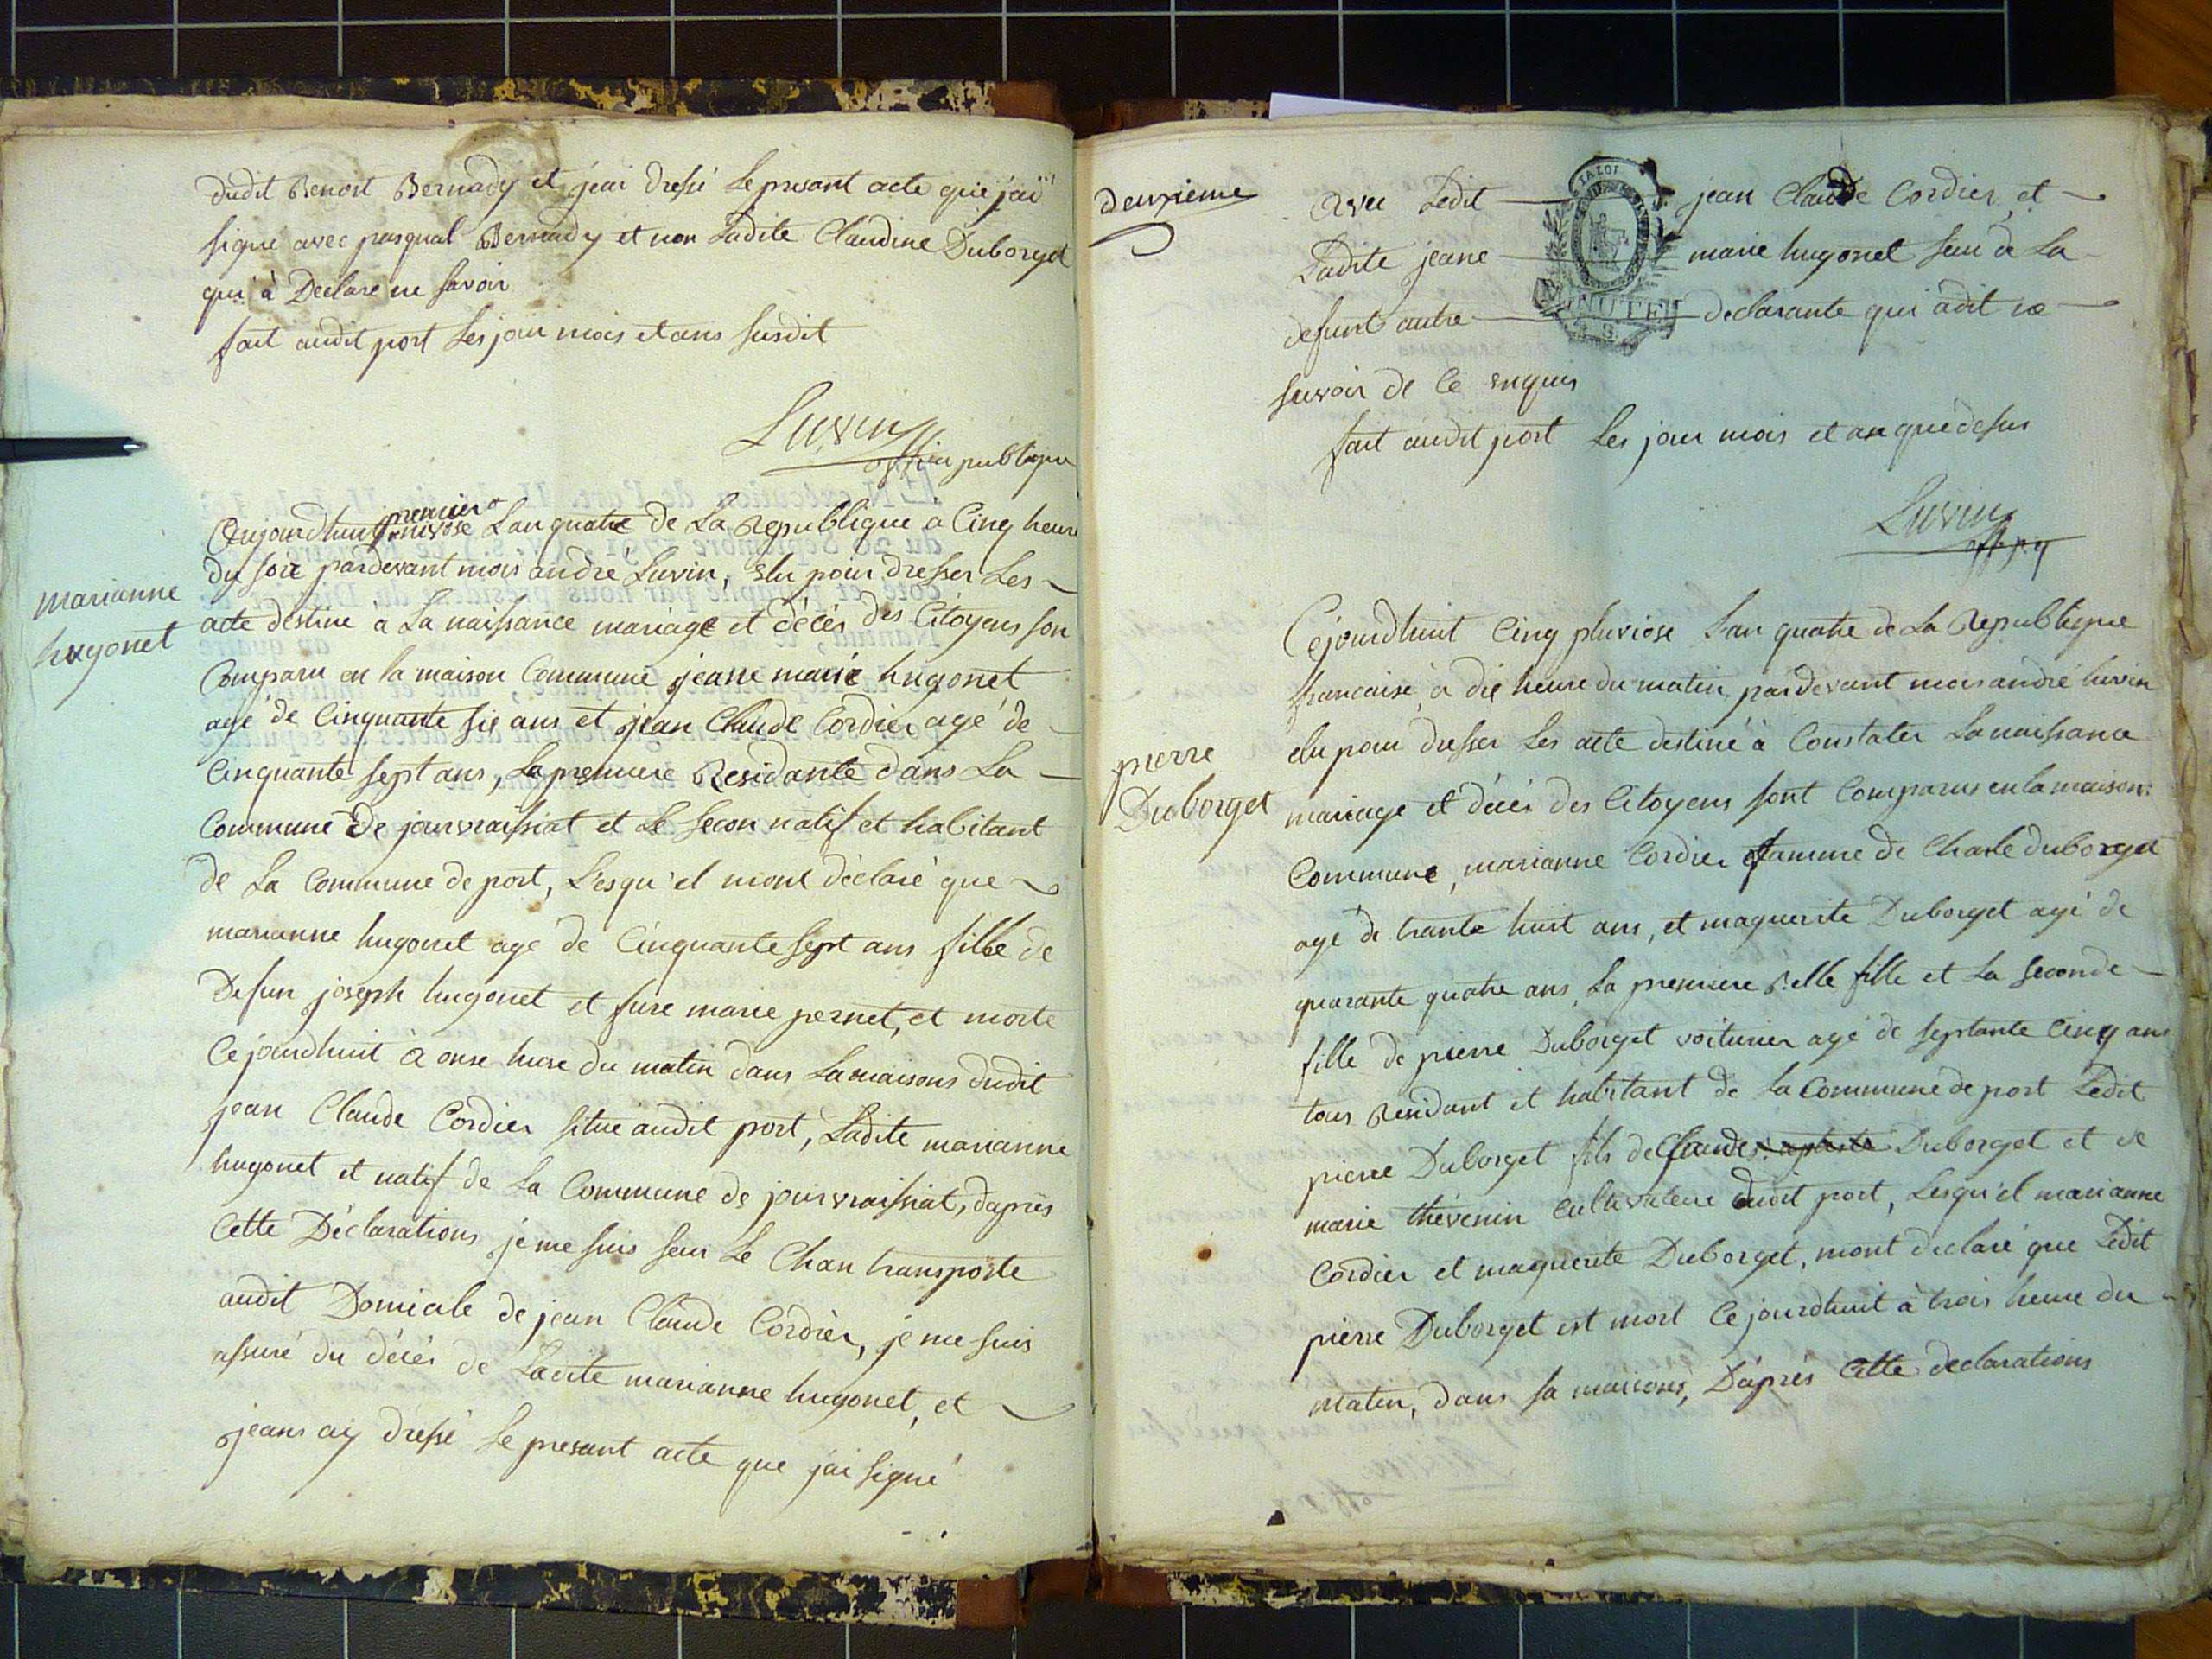 dudit Benoit Bernady et jeai dressé le presant acte que j'ai
signé avec pasqual Bernady et non Ladite Claudine Duborget
qui à Declare ne savoir
fait audit port Les jour mois et ans susdit
Luvin
offici publique
marianne
hugonet
Aujourdhuit premier nivose L'an quatre de La Republique a Cinq heure
du soir pardevant mois andré Luvin, Elu pour dresser Les
acte destiné à La naissance mariage et décès des Citoyens son
Comparu en la maison Commune jeane marie hugonet
agé de Cinquante sie ans et jean Claude Cordier agé de
Cinquante sept ans, La premiere Residante dans La
Commune de jourvraissiat et Le secon natif et habitant
de La Commune de port, L'esqu'el mont déclaré que
marianne hugonet agé de Cinquante sept ans fille de
Defun joseph hugonet et fure marie pernet, et morte
Ce jourdhuit à onse hure du matin dans La maisons dudit
jean Claude Cordier situé audit port, Ladite marianne
hugonet et natif de La Commune de jourvraissiat, d'aprés
Cette Déclarations je me suis seur Le Chan transporte
audit Domicile de jean Claude Cordier, je me suis
assuré du décés de Ladite marianne hugonet, et
jeans ay dressé Le presant acte que j'ai signé
deuxieme
Avec Ledit jean Claude Cordier et
Ladite jeane marie hugonet seur de La
defunt autre declarante qui a dit ne
savoir de Ce enquis
fait audit port Les jour mois et an que desus
Luvin
off. p.q
LA LOI
MINUTE
pierre
Duborget
Cejourdhuit Cinq pluviose L'an quatre de La Republique
francaise, à die heure du matin pardevant mois andré luvin
elu pour dresser Les acte destiné à Constater La naissance
mariage et décés des Citoyens sont Comparus en la maison
Commune, marianne Cordier famme de Charle duborget
agé de trante huit ans, et maguerite Duborget agé de
quarante quatre ans, La premiere Belle fille et La seconde
fille de pierre Duborget voiturier agé de septante Cinq ans
tous Residant et habitant de La Commune de port Ledit
pierre Duborget fils de Claude Duborget et de
marie thévenin Cultivateur dudit port, Lesqu'el marianne
Cordier et maguerite Duborget, mont declaré que Ledit
pierre Duborget est mort Ce jourdhuit à trois heure du
matin, dans sa maisons, D'aprés Cette declarations